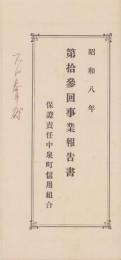 昭和八年
第拾參回事業報告書
保證責任中泉町信用組合